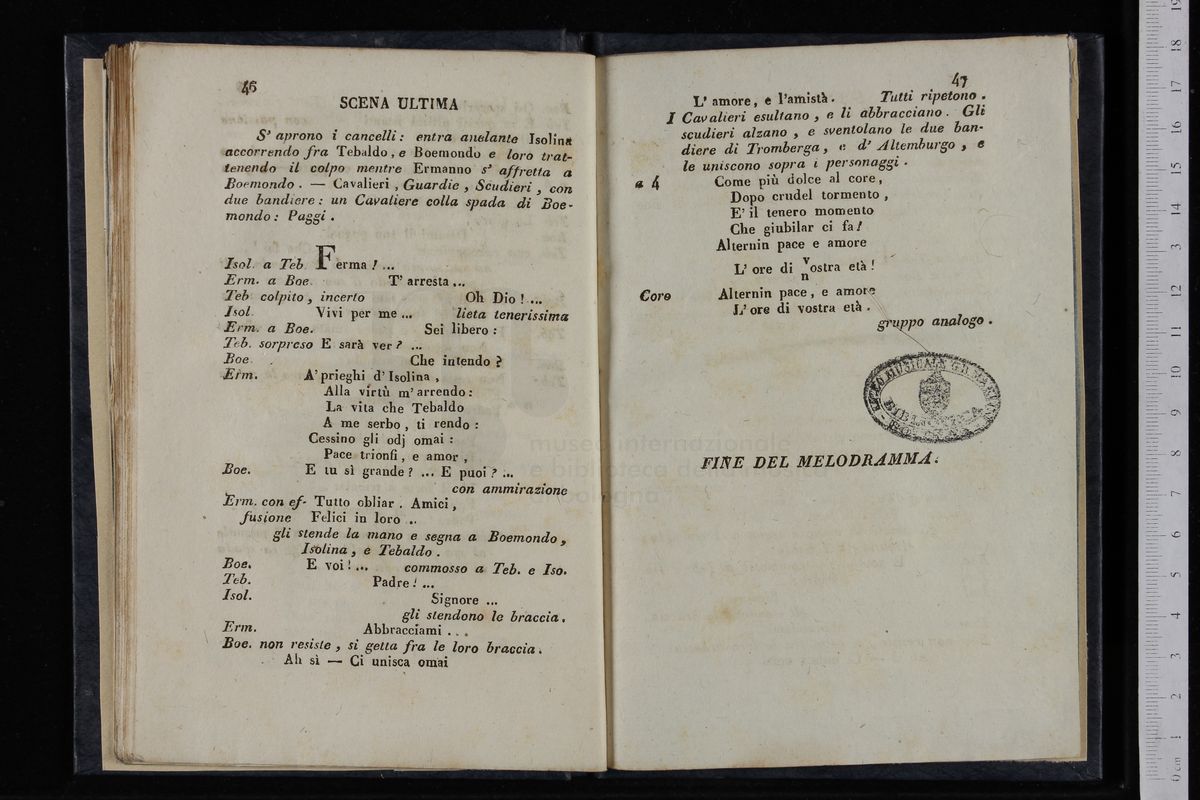 46
SCENA ULTIMA
S' aprono i cancelli : entra anelante Isolina
accorrendo fra Tebaldo, e Boemondo e loro trat-
tenendo il colpo mentre Ermanno s' affretta a
Boemondo . — Cavalieri , Guardie , Scudieri , con
due bandiere : un Cavaliere colla spada di Boe-
mondo : Paggi .
Isol. a Teb. Ferma ! ...
Erm. a Boe. T' arresta ...
Teb. colpito , incerto Oh Dio ! ...
Isol. Vivi per me ... lieta tenerissima
Erm. a Boe. Sei libero :
Teb. sorpreso E sarà ver ? ...
Boe. Che intendo ?
Erm. A' prieghi d' Isolina ,
Alla virtù m' arrendo :
La vita che Tebaldo
A me serbo , ti rendo :
Cessino gli odj omai :
Pace trionfi , e amor ,
Boe. E tu sì grande ? ... E puoi ? ...
con ammirazione
Erm. con ef- Tutto obliar . Amici ,
fusione Felici in loro ..
gli stende la mano e segna a Boemondo ,
Isolina , e Tebaldo .
Boe. E voi ! ... commosso a Teb. e Iso.
Teb. Padre ! ...
Isol. Signore ...
gli stendono le braccia .
Erm. Abbracciami . . .
Boe. non resiste , si getta fra le loro braccia .
Ah sì — Ci unisca omai
47
L' amore, e l'amistà . Tutti ripetono .
I Cavalieri esultano , e li abbracciano . Gli
scudieri alzano , e sventolano le due ban-
diere di Tromberga , e d' Altemburgo , e
le uniscono sopra i personaggi .
a 4 Come più dolce al core,
Dopo crudel tormento ,
E' il tenero momento
Che giubilar ci fa !
Alternin pace e amore
V
L' ore di ostra età !
n
Coro Alternin pace , e amore
L' ore di vostra età .
gruppo analogo .
LICEO MUSICALE G.B. MARTINI
BIBLIOTECA
BOLOGNA
FINE DEL MELODRAMMA.
museo internazionale
e biblioteca de
bologna